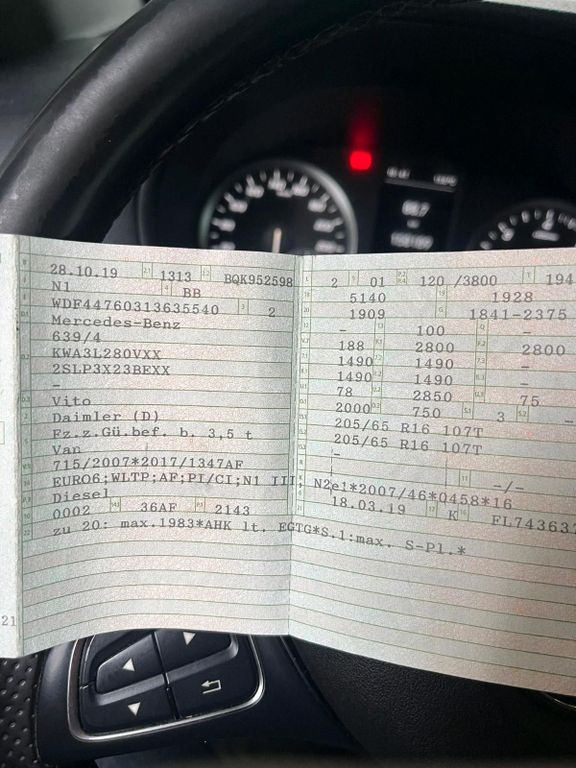 28.10.19 1313 BQK952598
N1 BB
WDF44760313635540 2
Mercedes-Benz
639/4
KWA3L280VXX
2SLP3X23BEXX
-
Vito
Daimler (D)
Fz.z.Gü.bef. b. 3,5 t
Van
715/2007*2017/1347AF
EURO6;WLTP;AF;PI/CI;N1 III, N2
Diesel
0002 36AF 2143
zu 20: max.1983*AHK lt. EGTG*S.1:max. S-Pl.*
21
2 01 120 /3800 194
5140 1928
1909 1841-2375
- 100 -
188 2800 2800
1490 1490 -
1490 1490 -
78 2850 75
2000 750 3 -
205/65 R16 107T
205/65 R16 107T
-
-/-
e1*2007/46*0458*16
18.03.19 K FL743637